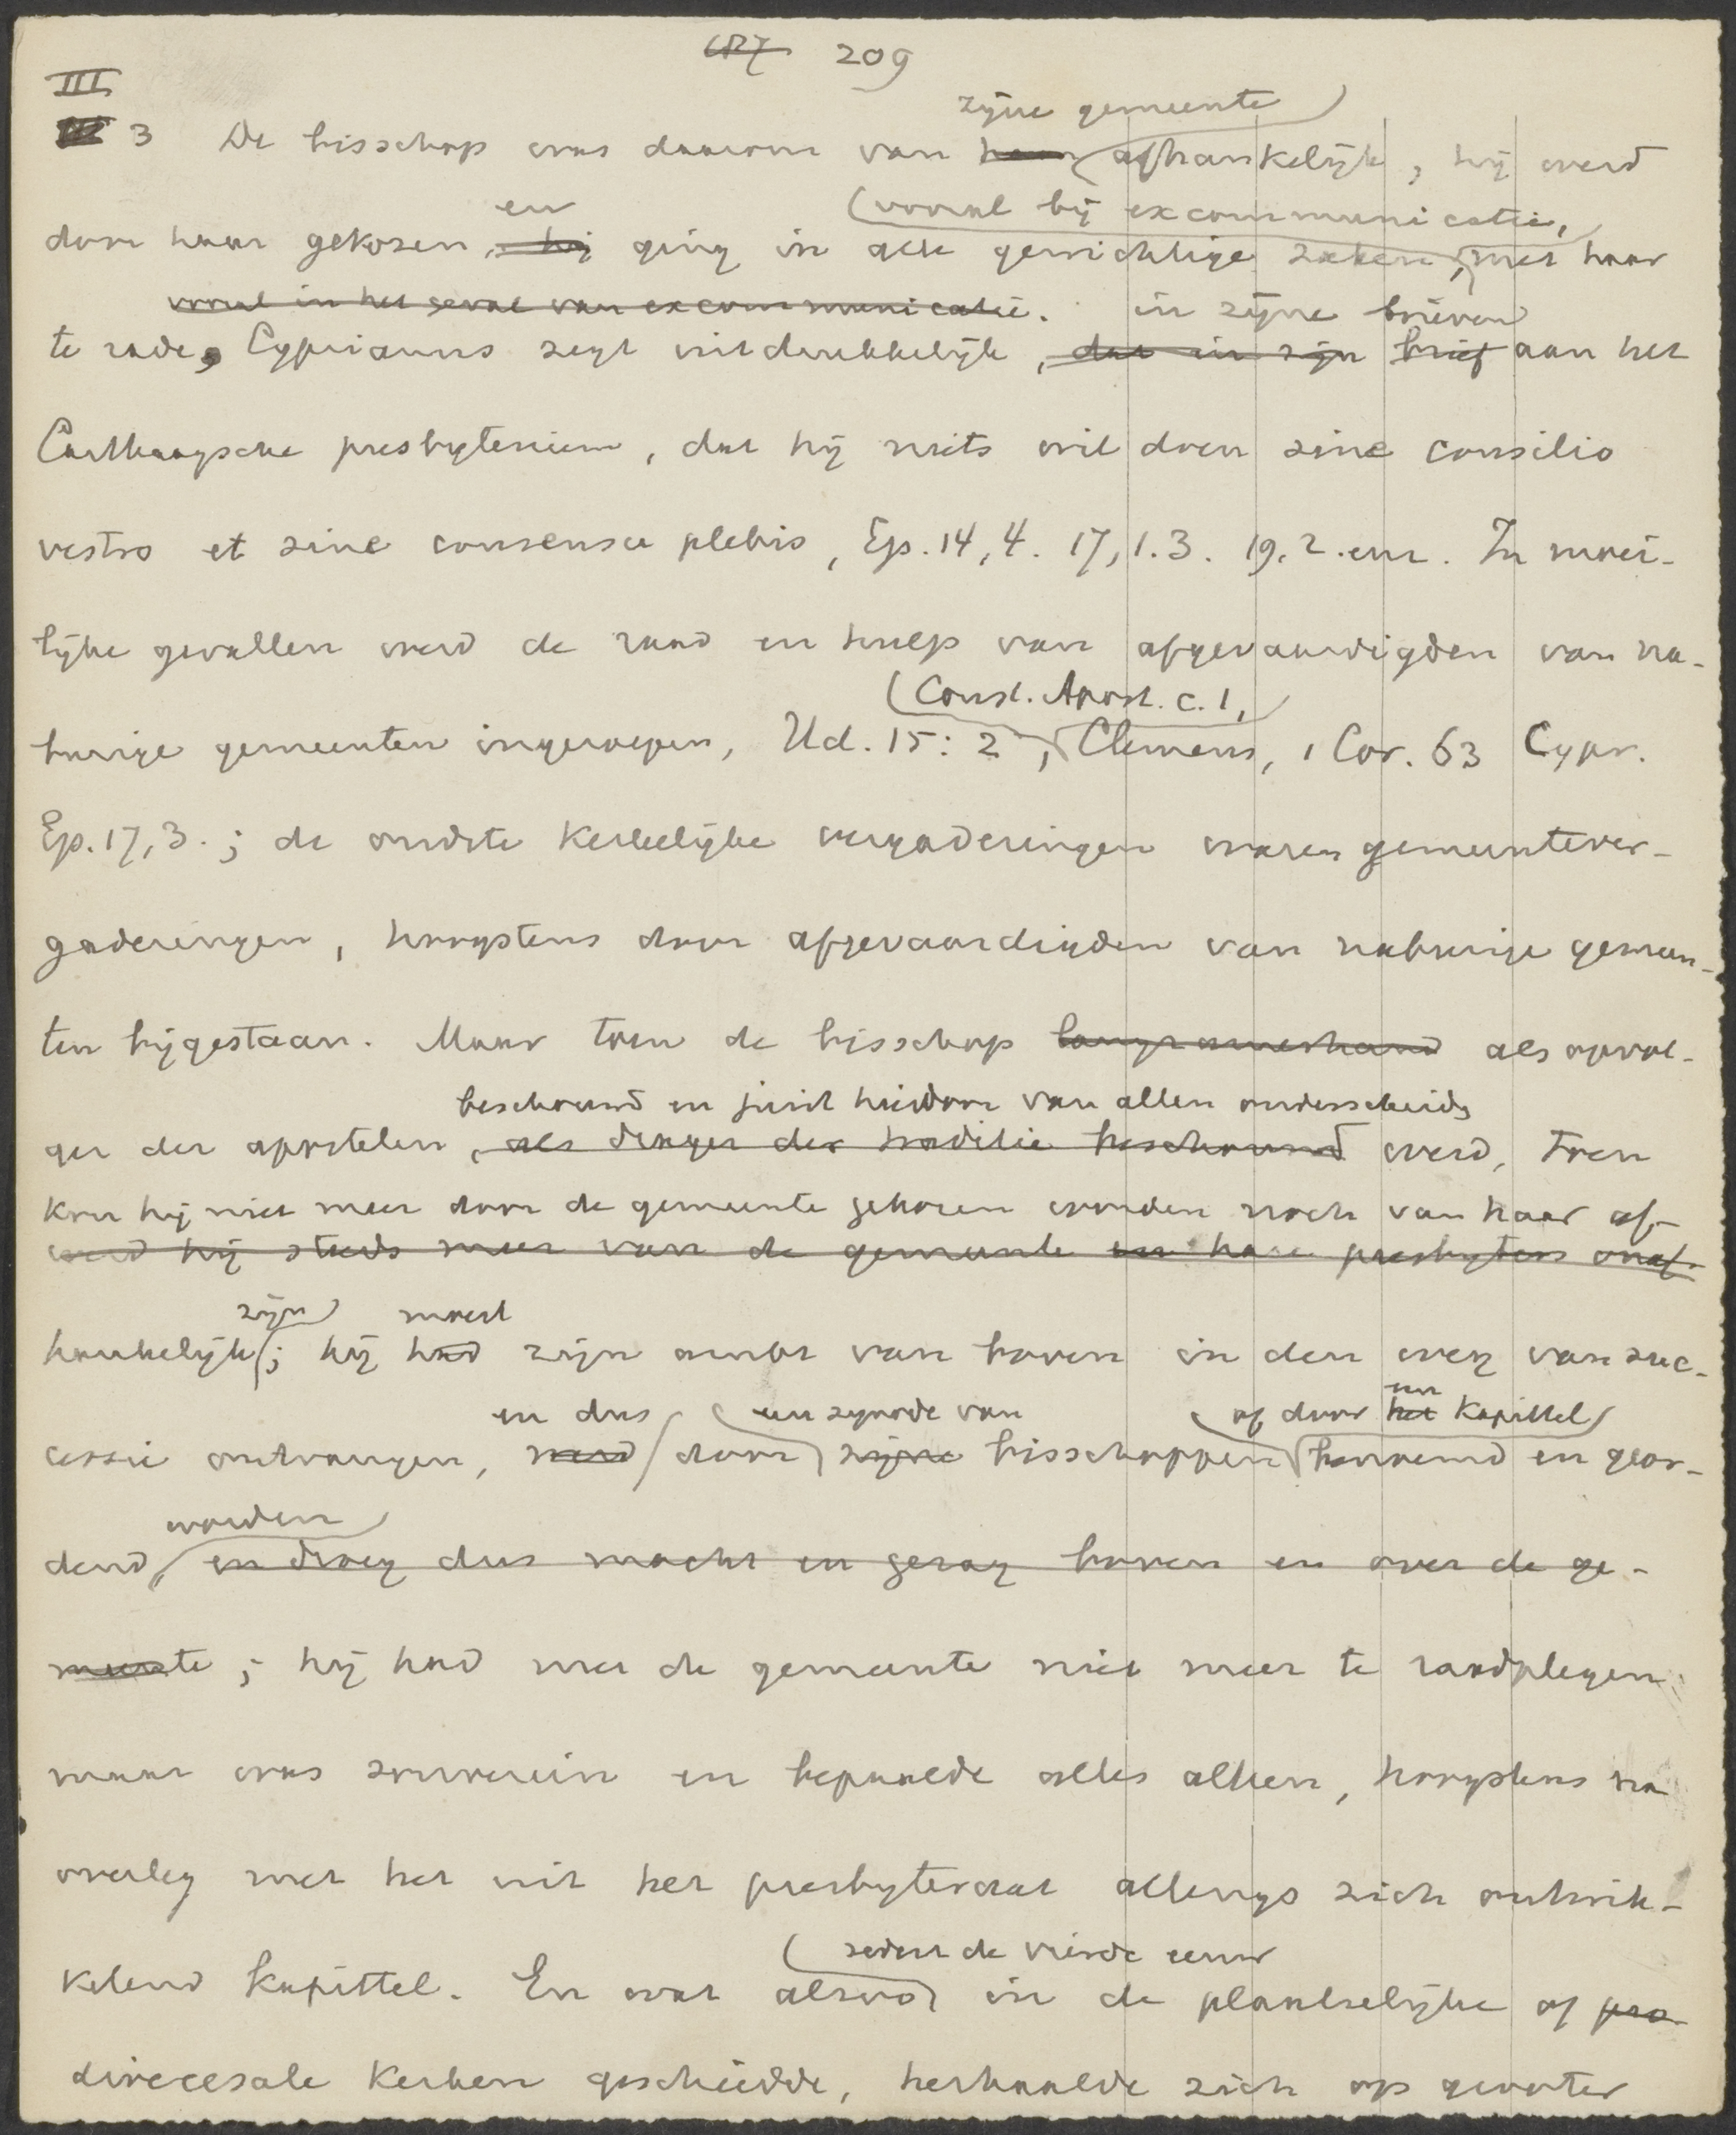 209
III
3 De bisschop was daarom van haar zijne gemeente afhankelijk, hij werd
door haar gekozen, hij en ging in alle gewichtige zaken, vooral bij excommunicatie, met haar
vooral in het geval van excommunicatie. in zijne brieven
te rade, Cyprianus zegt uitdrukkelijk, dat in zijn brief aan het
Carthaagsche presbyterium, dat hij niets wil doen sine consilio
vestro et sine consensu plebis, Ep. 14, 4. 17, 1. 3. 19, 2. enz. In moei-
lijke gevallen werd de raad en hulp van afgevaardigden van na-
burige gemeenten ingeroepen, Hd. 15: 2, Const. Apost. c. 1, Clemens, 1 Cor. 63 Cypr.
Ep. 17, 3. ; de oudste kerkelijke vergaderingen waren gemeentever-
gaderingen, hoogstens door afgevaardigden van naburige gemeen-
ten bijgestaan. Maar toen de bisschop langzamerhand als opvol-
beschouwd en juist hierdoor van allen onderscheiden
ger der apostelen, als drager der traditie beschouwd werd, toen
kon hij niet meer door de gemeente gekozen worden noch van haar af-
werd hij steeds meer van de gemeente en hare presbyters onaf-
hankelijk zijn; hij had moest zijn ambt van boven in den weg van suc-
cessie ontvangen, werd en dus door een synode van zijne bisschoppen of door het een kapittel benoemd en geor-
dend worden, en droeg dus macht en gezag boven en over de ge-
meente; hij had met de gemeente niet meer te raadplegen
maar was souverein en bepaalde alles alleen, hoogstens na
overleg met het uit het presbyteraat allengs zich ontwik-
kelend kapittel. En wat alzoo sedert de vierde eeuw in de plaatselijke of pro-
diocesale kerken geschiedde, herhaalde zich op grooter